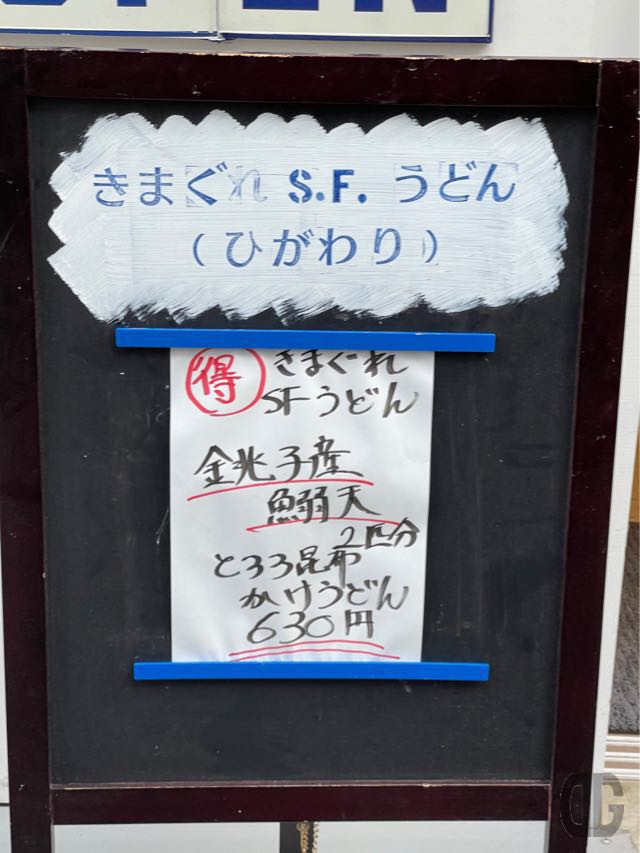 OPEN
きまぐれ S.F. うどん
(ひがわり)
得 きまぐれ
SFうどん
金兆子産
魚弱天
2匹分
とろろ昆布
かけうどん
630円